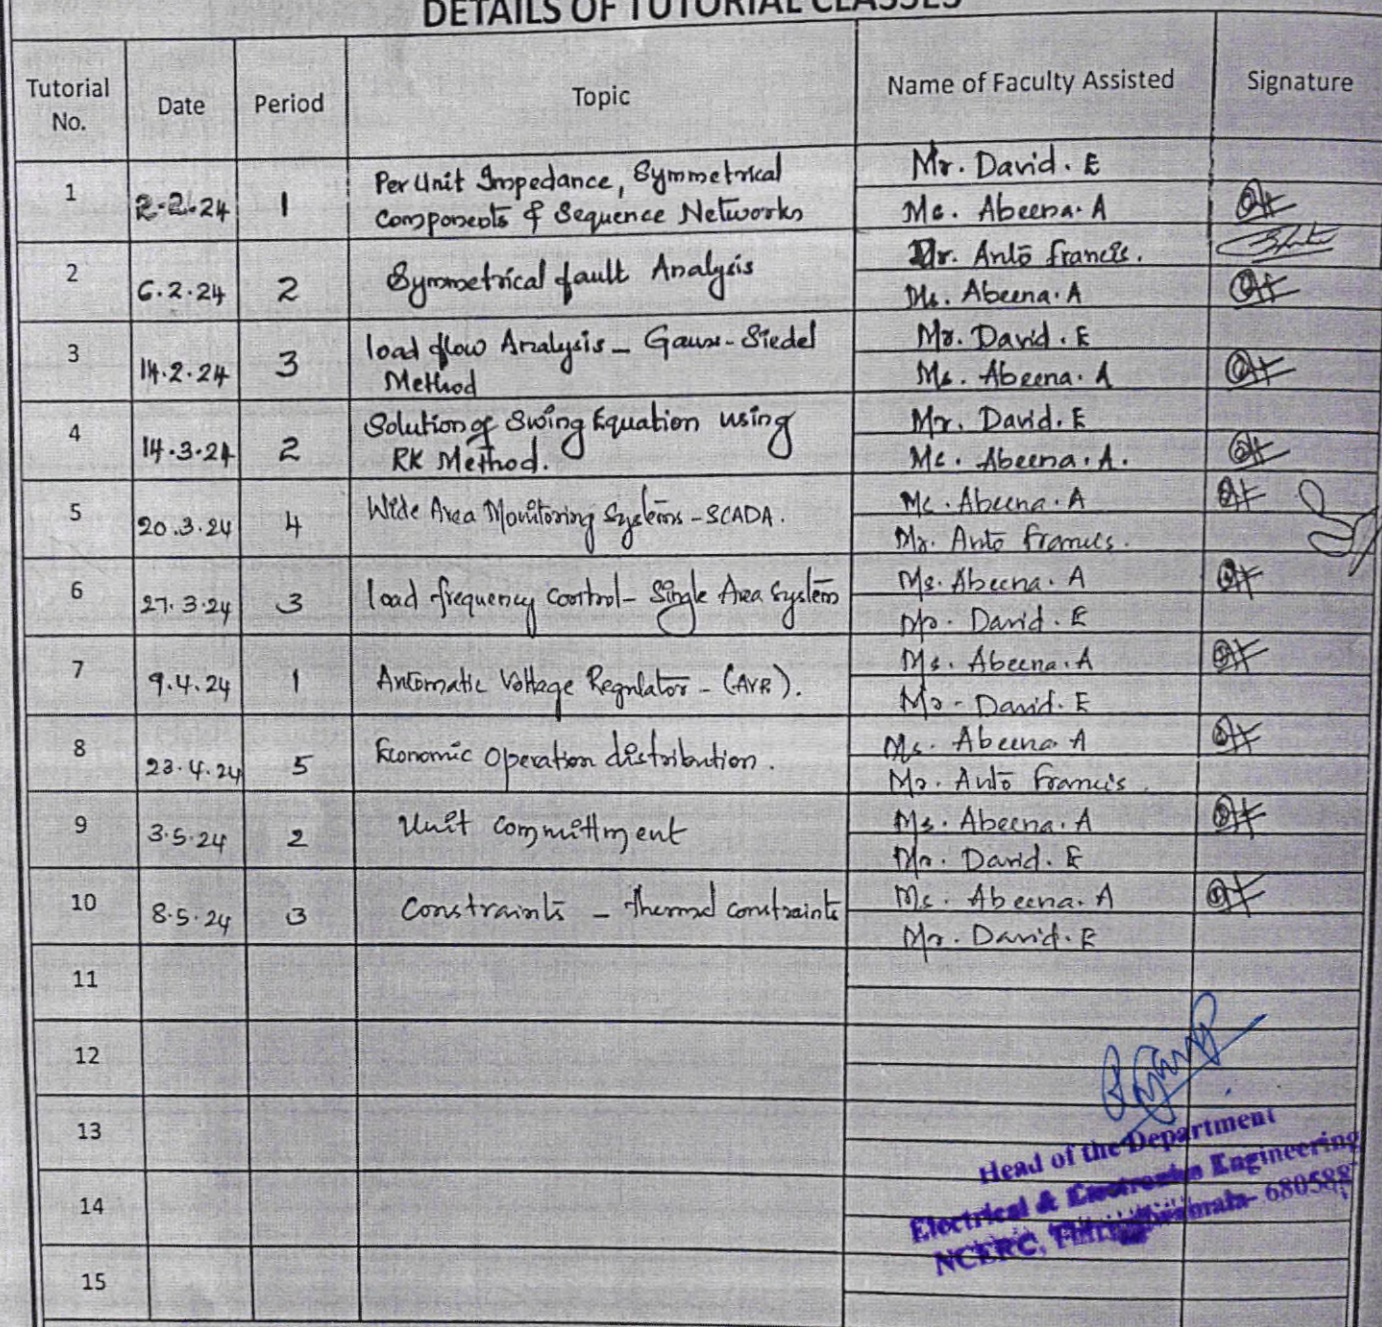 DETAILS OF TUTORIAL CLASSES
Tutorial No. Date Period Topic Name of Faculty Assisted Signature
1 2.2.24 1 Per Unit Impedance, Symmetrical Mr. David. E
Components & Sequence Networks Ms. Abeena. A
2 6.2.24 2 Symmetrical fault Analysis Mr. Anto francis.
Ms. Abeena. A
3 14.2.24 3 load flow Analysis - Gauss-Siedel Mr. David. E
Method Ms. Abeena. A
4 14.3.24 2 Solution of Swing Equation using Mr. David. E
RK Method. Ms. Abeena. A.
5 20.3.24 4 Wide Area Monitoring Systems - SCADA. Ms. Abeena. A
Mr. Anto francis.
6 27.3.24 3 load frequency control - Single Area System Ms. Abeena. A
Mr. David. E
7 9.4.24 1 Automatic Voltage Regulator - (AVR). Ms. Abeena. A
Mr. David. E
8 23.4.24 5 Economic Operation distribution. Ms. Abeena A
Mr. Anto francis.
9 3.5.24 2 Unit committment Ms. Abeena. A
Mr. David. E
10 8.5.24 3 Constraints - thermal constraints Ms. Abeena. A
Mr. David. E
11
12
13
14
15
Head of the Department
Electrical & Electronics Engineering
NCERC, 680588